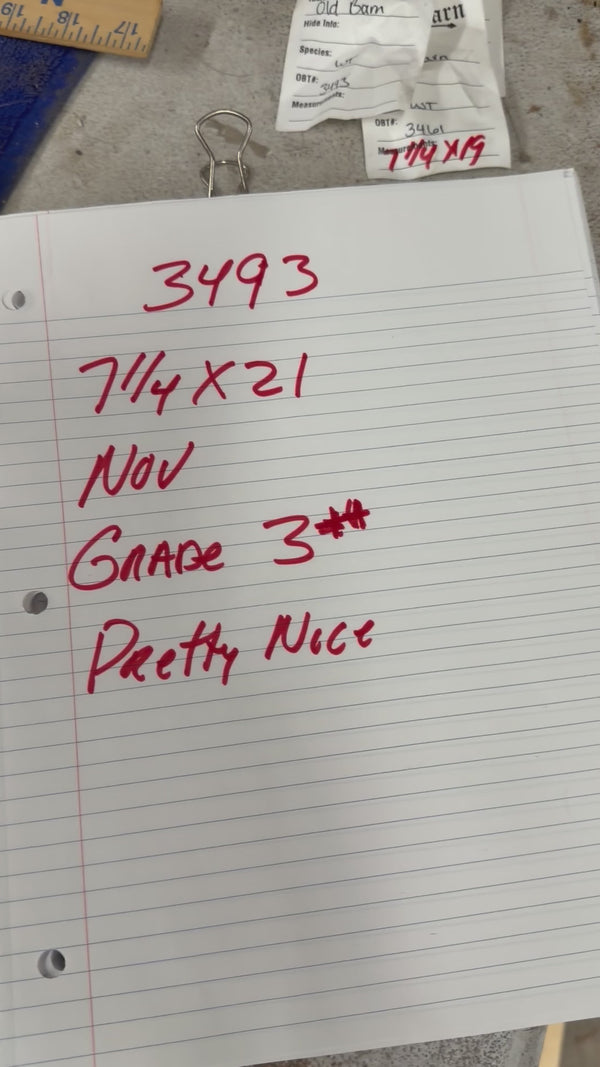 19
18
17
Old Barn
Hide Info:
Species:
WT
OBT#:
3493
Measurements:
arn
WT
OBT#:
3461
7 1/4 X 19
3493
7 1/4 X 21
NOV
GRADe 3**
Pretty Nice